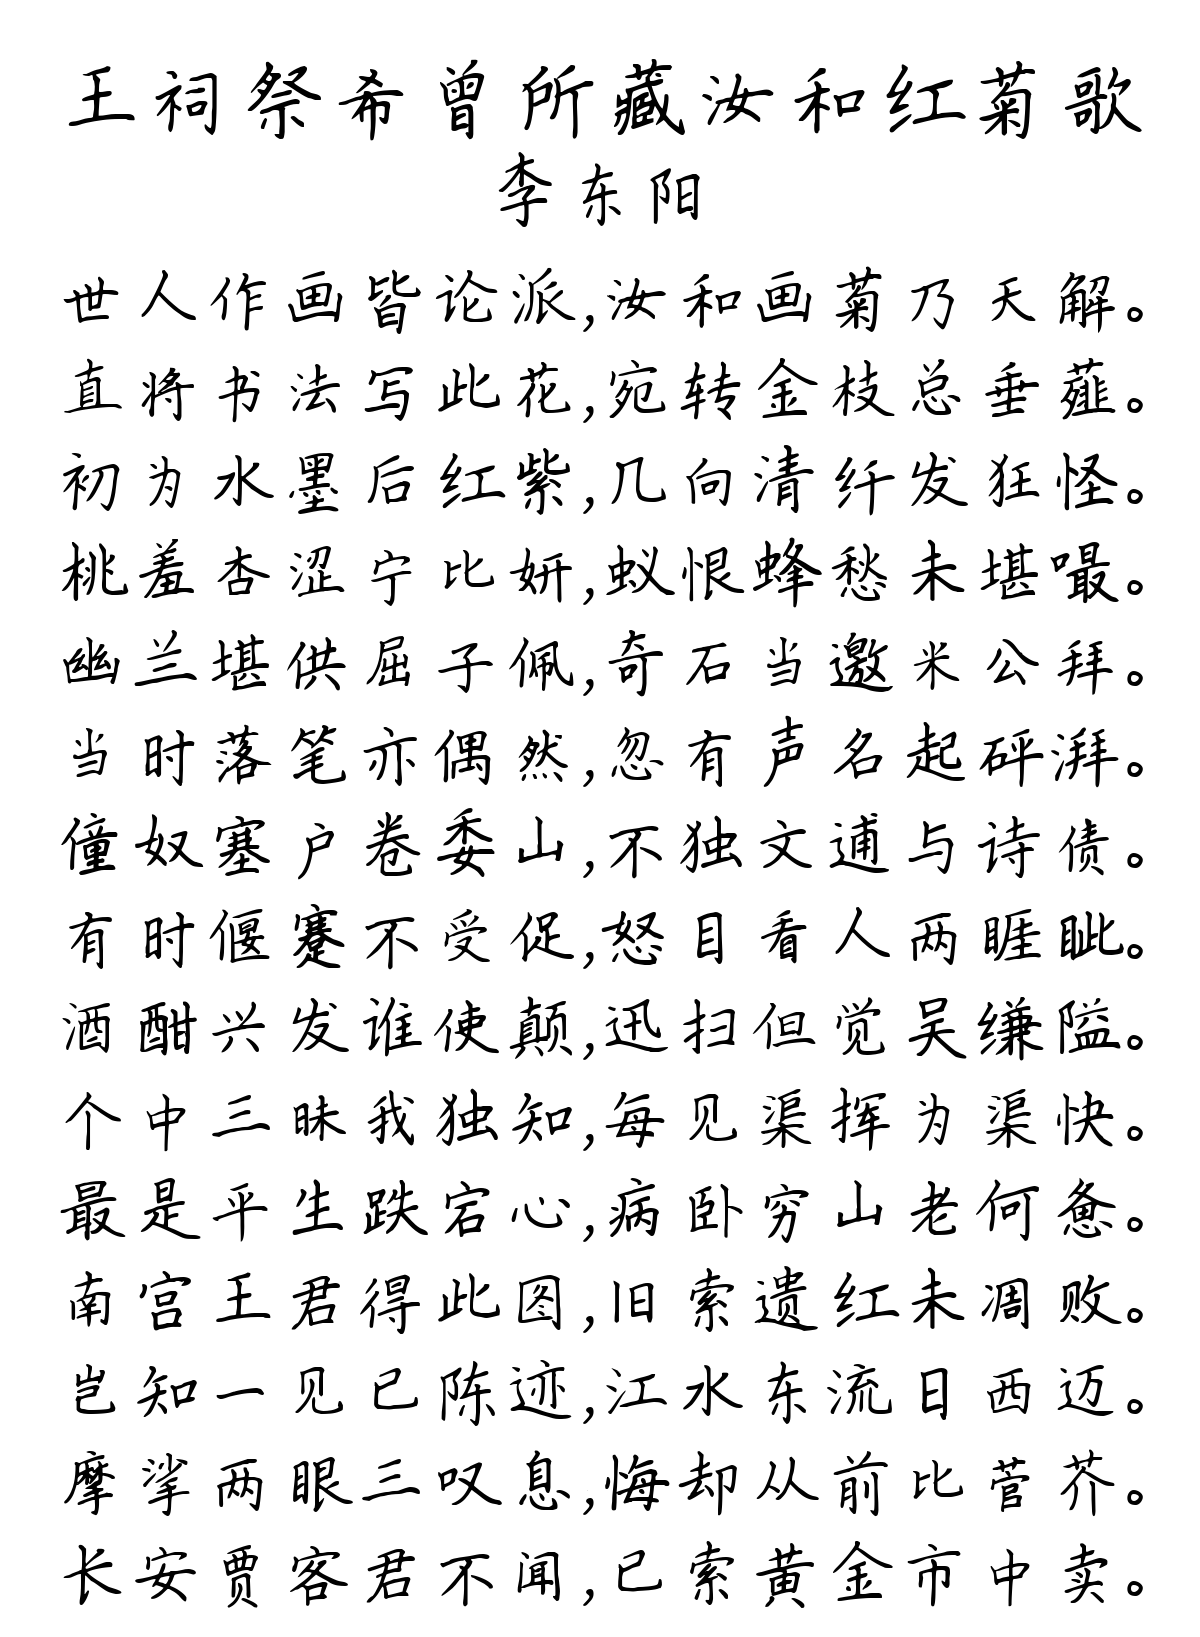 王祠祭希曾所藏汝和红菊歌
李东阳
世人作画皆论派,汝和画菊乃天解。
直将书法写此花,宛转金枝总垂薤。
初为水墨后红紫,几向清纤发狂怪。
桃羞杏涩宁比妍,蚁恨蜂愁未堪嘬。
幽兰堪供屈子佩,奇石当邀米公拜。
当时落笔亦偶然,忽有声名起砰湃。
僮奴塞户卷委山,不独文逋与诗债。
有时偃蹇不受促,怒目看人两睚眦。
酒酣兴发谁使颠,迅扫但觉吴缣隘。
个中三昧我独知,每见渠挥为渠快。
最是平生跌宕心,病卧穷山老何惫。
南宫王君得此图,旧索遗红未凋败。
岂知一见已陈迹,江水东流日西迈。
摩挲两眼三叹息,悔却从前比菅芥。
长安贾客君不闻,已索黄金市中卖。